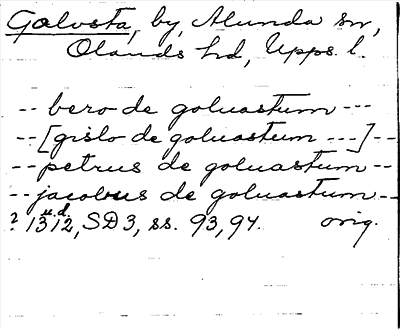 Golvsta, by, Alunda sn,
Olands hd, Upps. l.
-- bero de goluastum ---
-- [gislo de goluastum ---] --
-- petrus de goluastum --
-- jacobus de goluastum --
? u.d. 1312, SD 3, ss. 93, 94. orig.